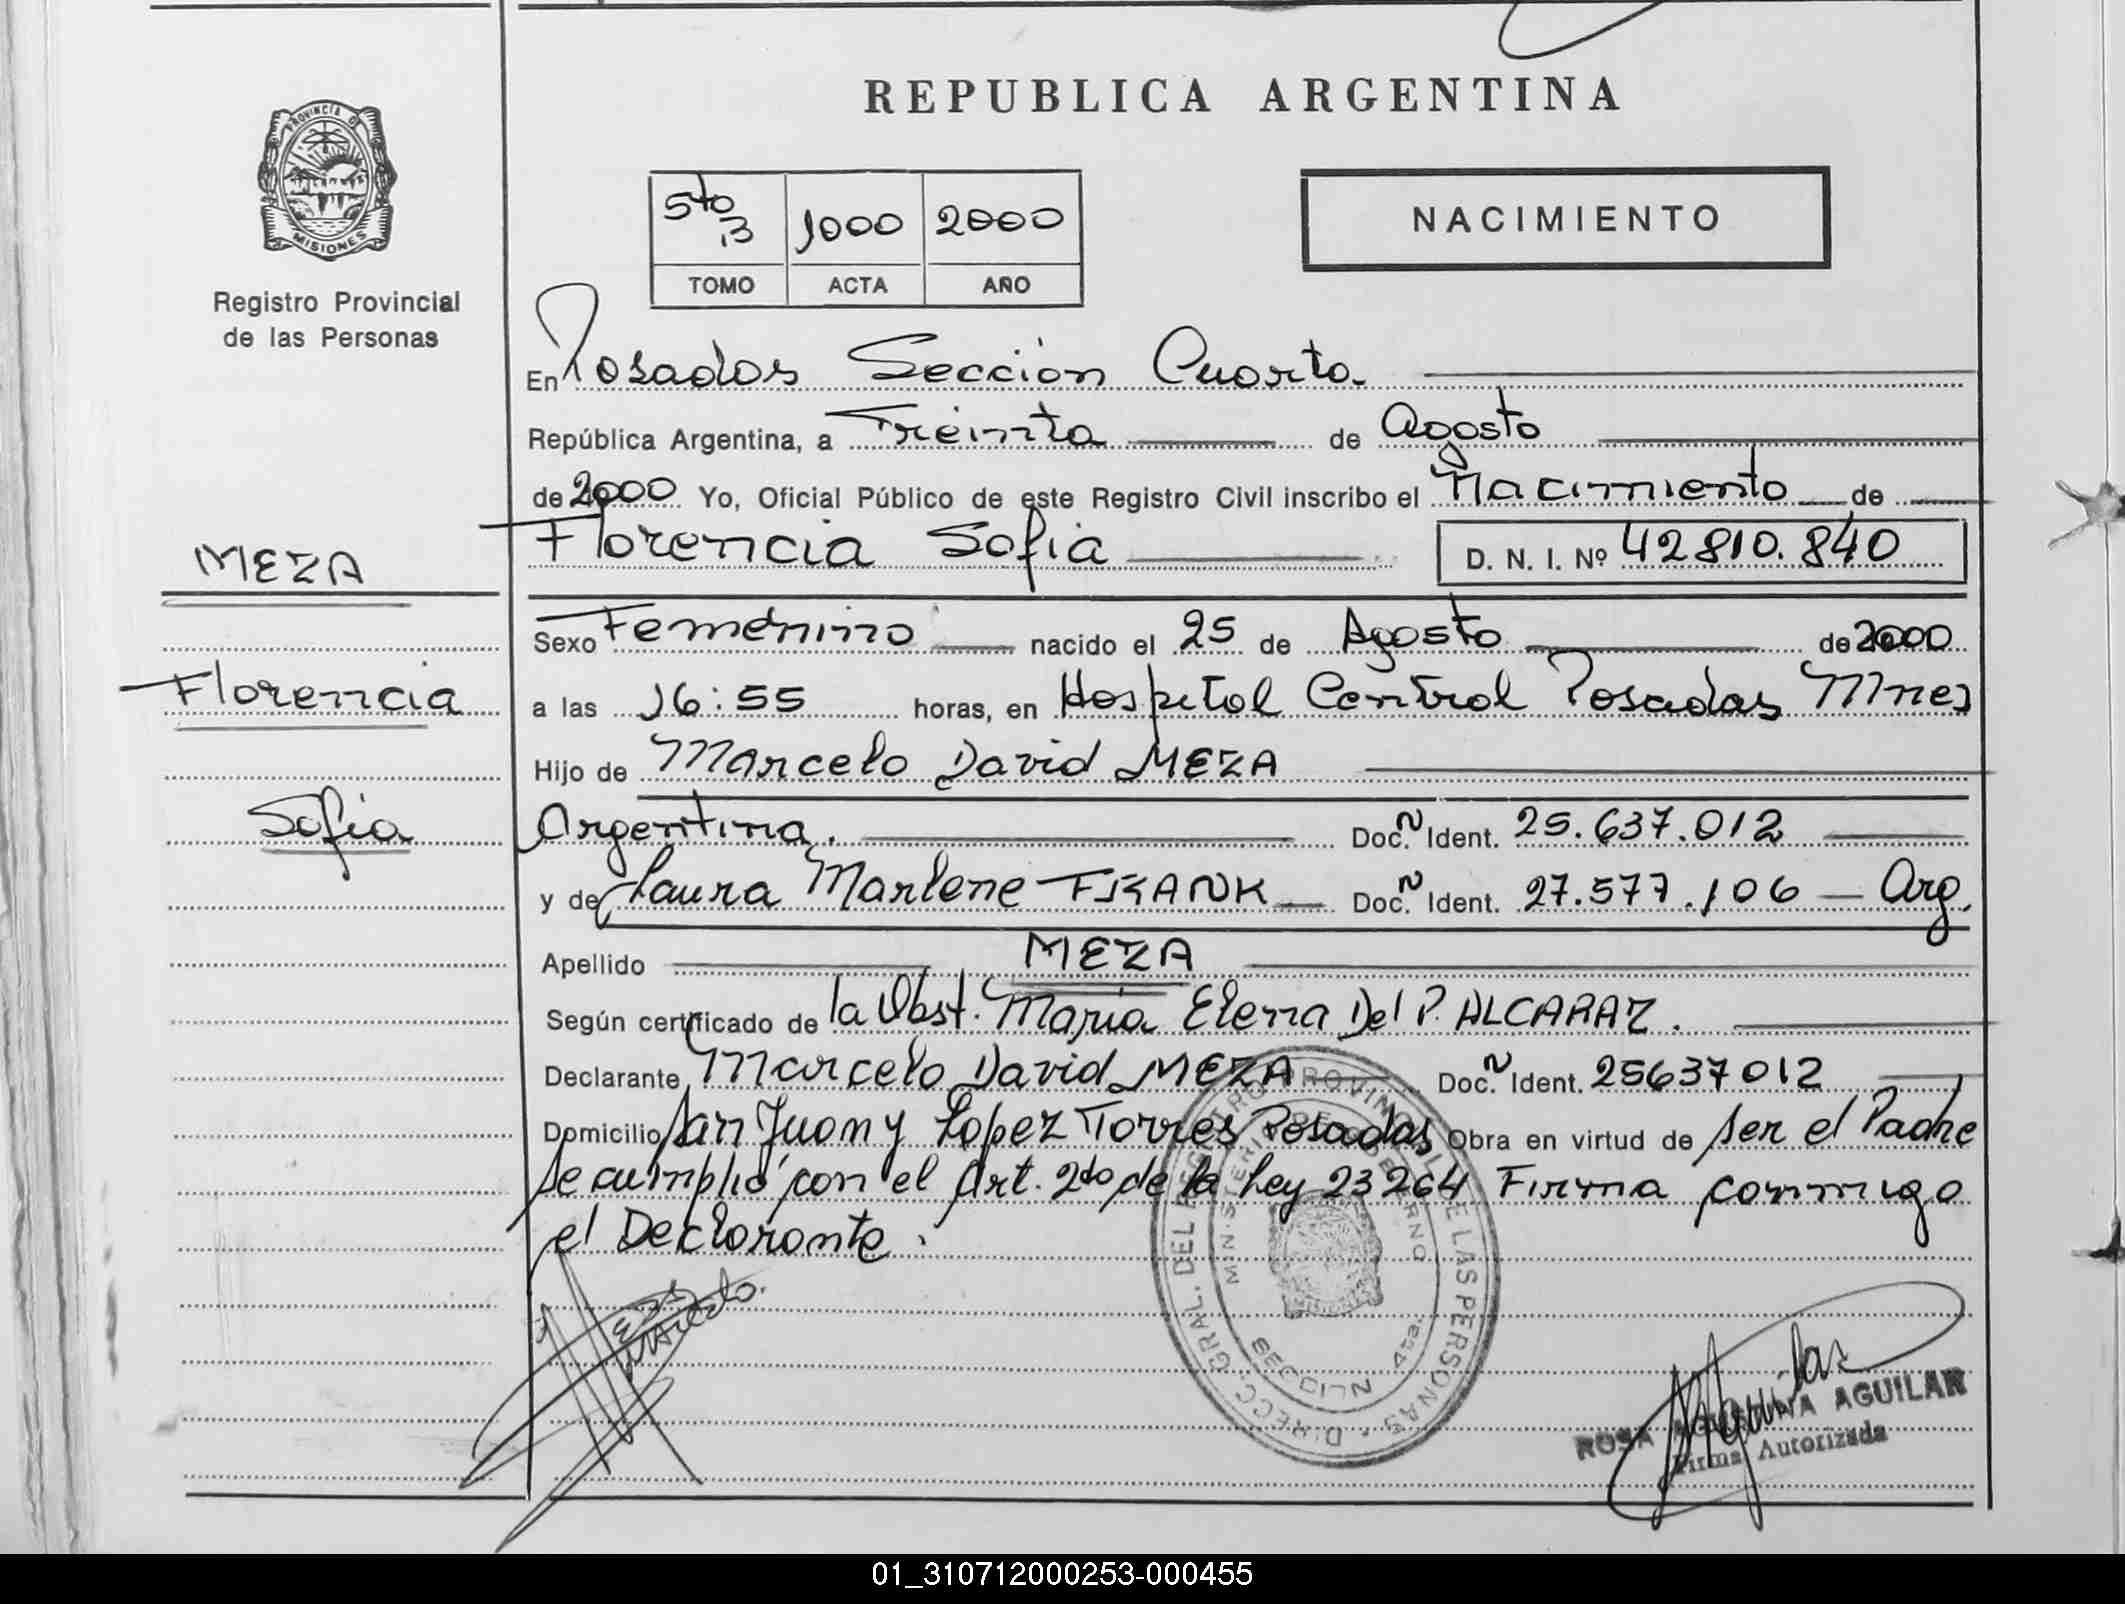 REPUBLICA ARGENTINA
PROVINCIA D
MISIONES
Registro Provincial
de las Personas
5to B 1000 2000
TOMO ACTA AÑO
NACIMIENTO
En Posadas Sección Cuarta
República Argentina, a Treinta de Agosto
de 2000 Yo, Oficial Público de este Registro Civil inscribo el Nacimiento de
Florencia Sofia D. N. I. Nº 42810.840
MEZA
Florencia
Sofia
Sexo Femenino nacido el 25 de Agosto de 2000
a las 16:55 horas, en Hospital Central Posadas Mnes
Hijo de Marcelo David MEZA
Argentina. Doc. N Ident. 25.637.012
y de Laura Marlene FRANK Doc. N Ident. 27.577.106 — Arg.
Apellido MEZA
Según certificado de la Obst. Maria Elena Del P. ALCARAZ.
Declarante Marcelo David MEZA Doc. N Ident. 25637012
Domicilio San Juan y Lopez Torres Posadas Obra en virtud de ser el Padre
Se cumplió con el Art. 2do de la Ley 23264 Firma conmigo
el Declarante.
DIRECC. GRAL. DEL REGISTRO PROVINCIAL DE LAS PERSONAS
MINISTERIO DE GOBIERNO
SECCION 4ta.
ROSA AGUSTINA AGUILAR
Firma Autorizada
01_310712000253-000455